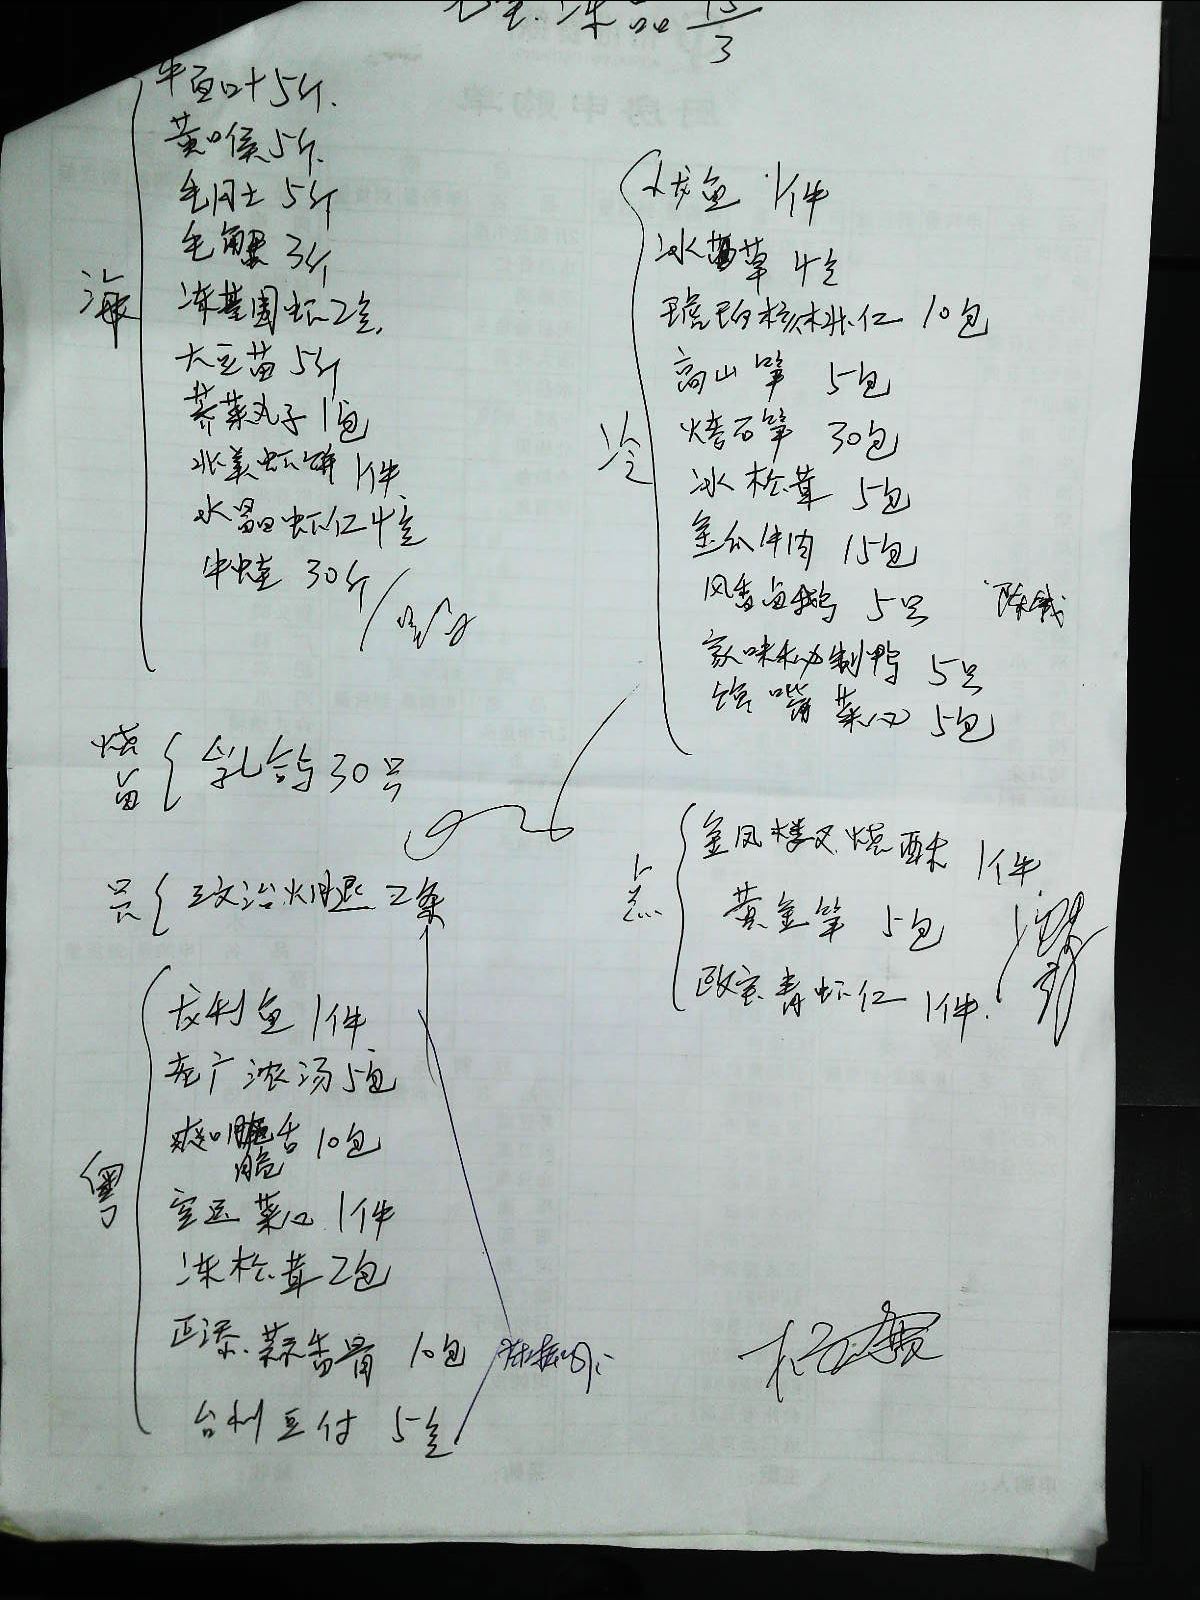 冻品 15/3
海
牛百叶5斤.
黄喉5斤.
毛肚5斤
毛蟹3斤
冻基围虾2盒.
大豆苗5斤
荠菜丸子1包
北美虾饼1件
水晶虾仁4盒
牛蛙30斤
冷
龙鱼1件
冰草4盒
琥珀核桃仁10包
高山笋5包
烤石笋30包
冰松茸5包
金瓜牛肉15包
风香卤鹅5只
家味秘制鸭5只
馆嘴菜心5包
烧卤
乳鸽30只
吴
政治火腿2条
点
金凤楼叉烧酥1件.
黄金笋5包
政宝青虾仁1件.
粤
龙利鱼1件
老广浓汤5包
爽口脆舌10包
脆
空运菜心1件
冻松茸2包
正添.蒜香骨10包
台利豆付5盒